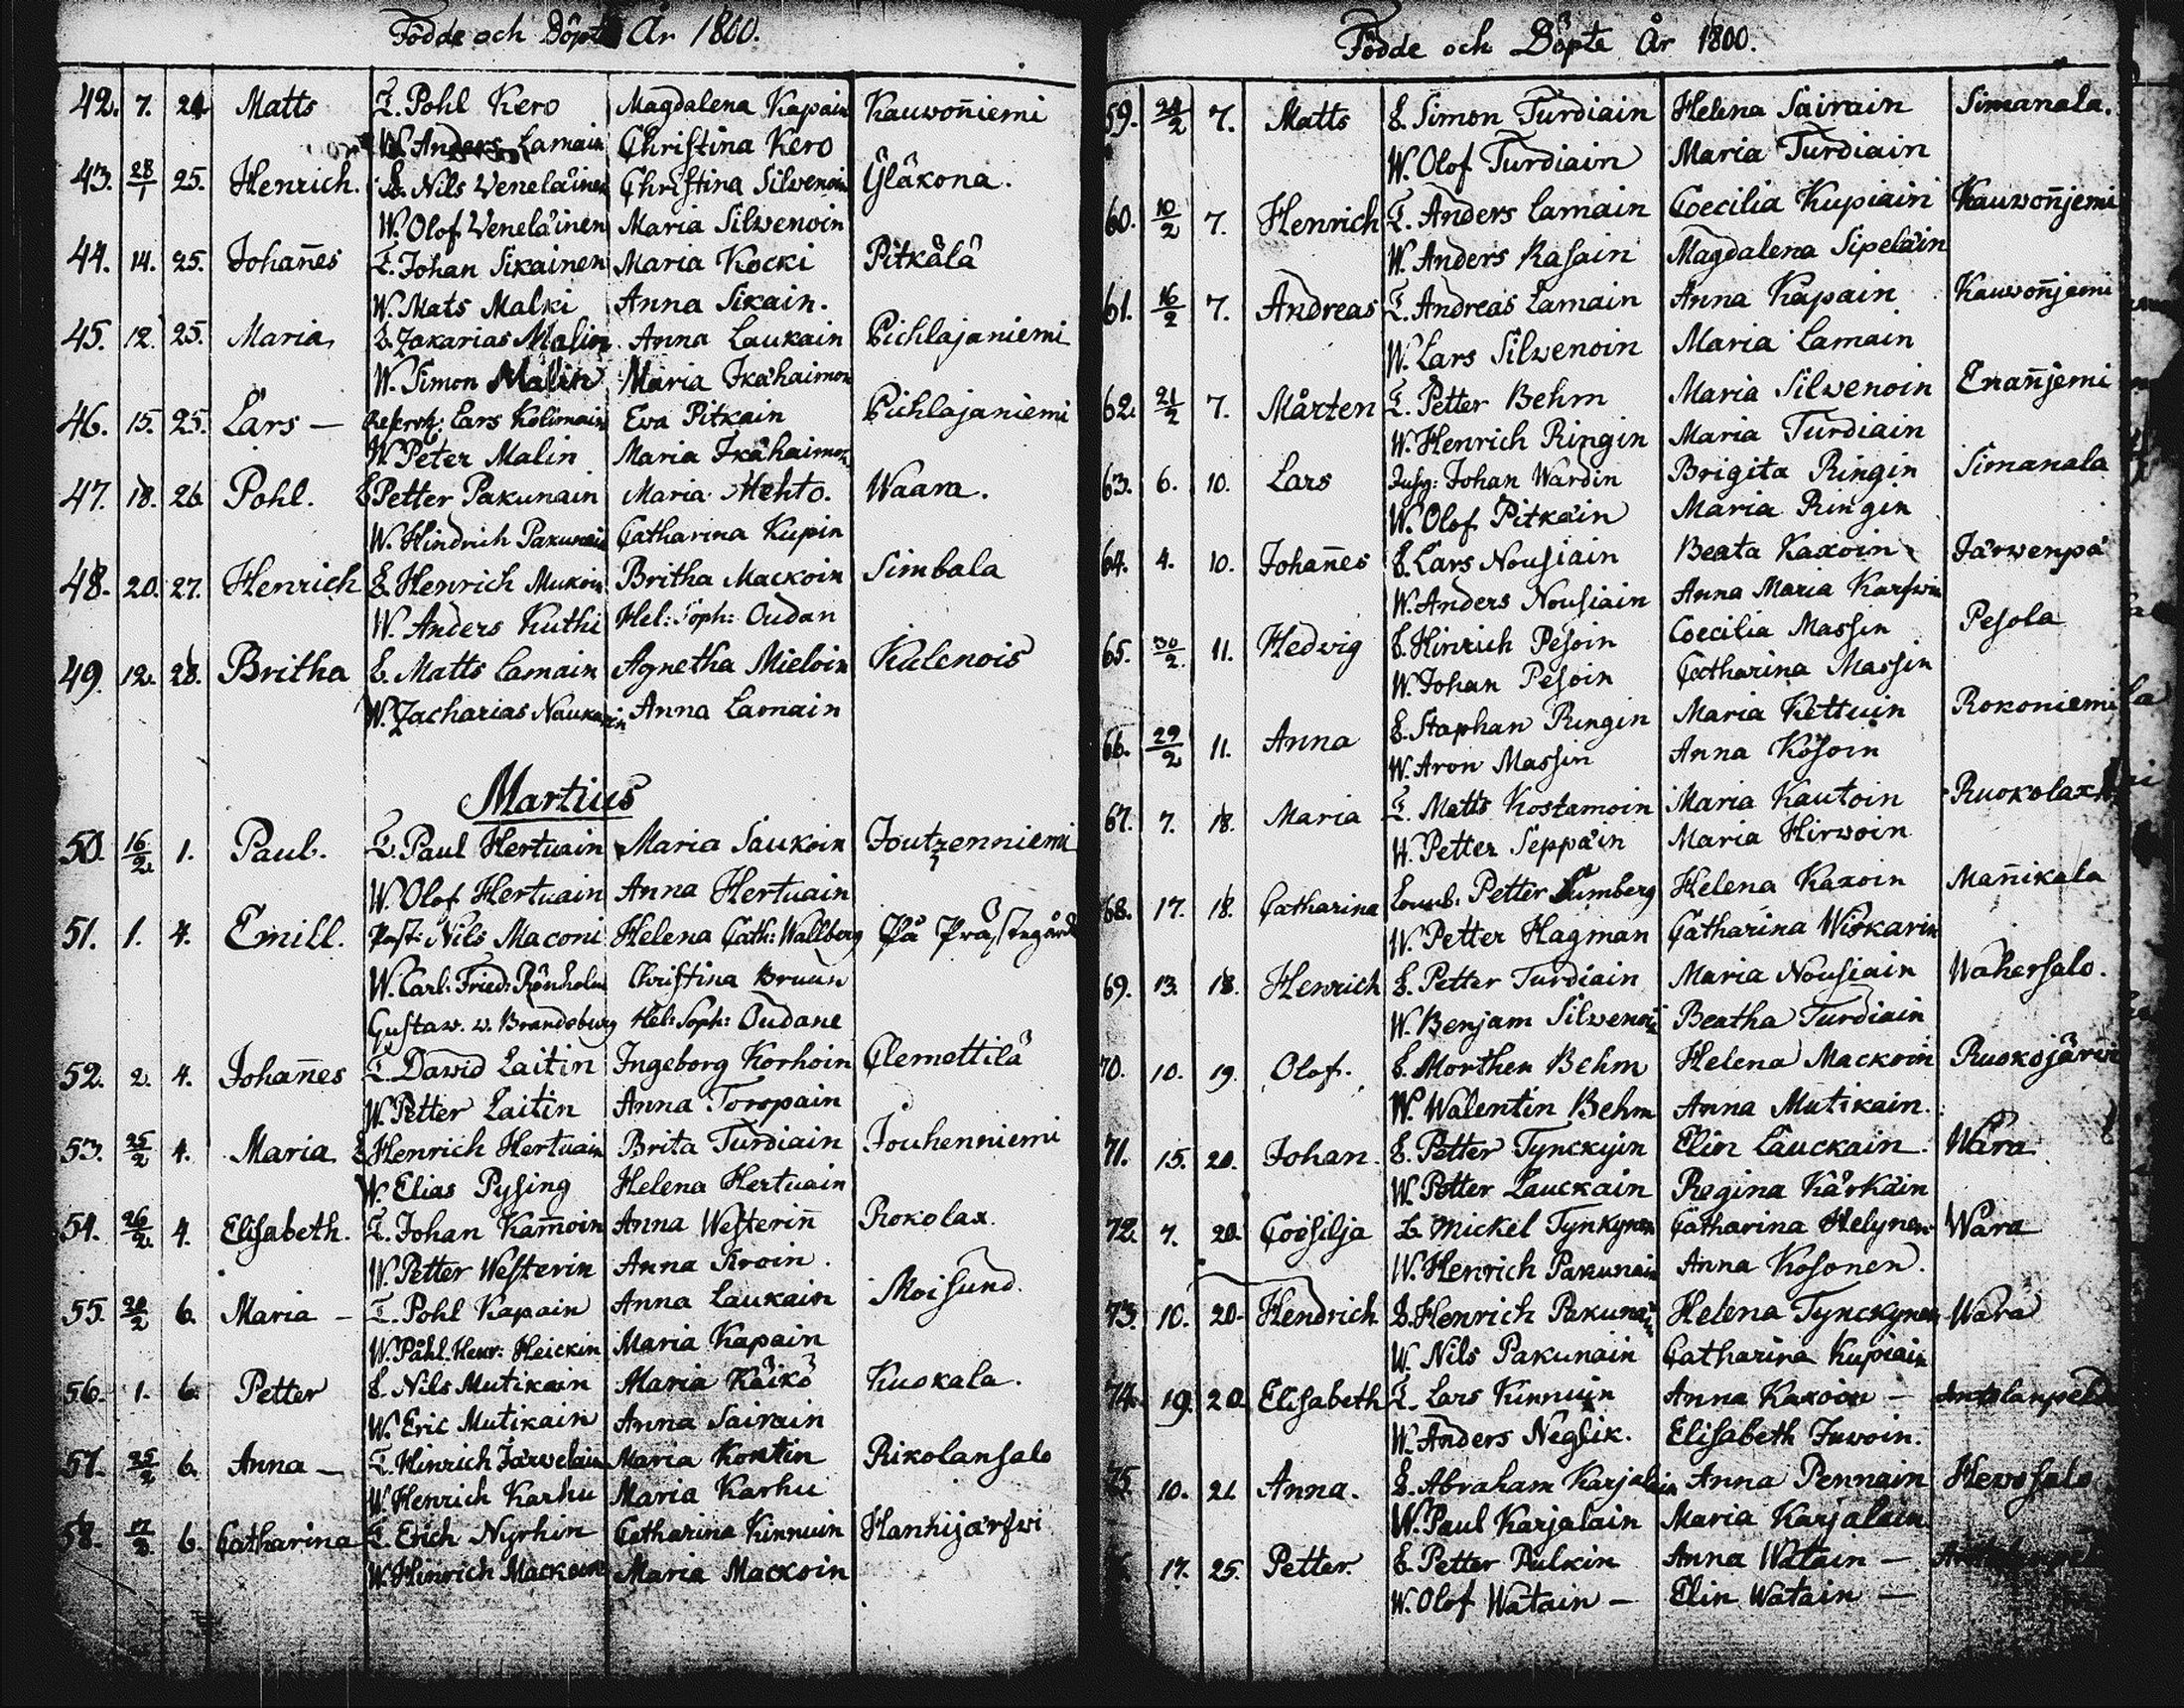 Födde och Döpte År 1800.
42. 7. 24 Matts T. Pohl Kero Magdalena Kapain Kauwon̄iemi
W. Anders Lamain Christina Kero
43. 28/1 25. Henrich. L. Nils Weneläinen Christina Silwenoin Yläkona.
W. Olof Weneläinen Maria Silwenoin
44. 14. 25. Johan̄es T. Johan Sikainen Maria Kocki Pitkälä
W. Mats Malki Anna Sikain.
45. 12. 25. Maria L. Zakarias Malin Anna Laukain Pichlajaniemi
W. Simon Malin Maria Ikähaimon
46. 15. 25. Lars — Lars Kolimain Eva Pitkain Pichlajaniemi
W. Peter Malin Maria Ikähaimon
47. 18. 26 Pohl. L Petter Pakunain Maria Mehto. Waara.
W. Hindrich Pakunain Catharina Kupin
48. 20. 27. Henrich L. Henrich Mukoin Britha Mackoin Simbala
W. Anders Kuthi Hel: Soph: Oudan
49. 12. 28. Britha L. Matts Lamain Agnetha Mieloin Kulenois
W. Zacharias Naukarin Anna Lamain
Martius
50. 16/2 1. Paul. L. Paul Hertuain Maria Saukoin Joutzenniemi
W. Olof Hertuain Anna Hertuain
51. 1. 4. Emill. Past: Nils Maconi Helena Cath: Wallberg På Prästegård
W. Carl: Fried: Rönholm Christina Bruun
Gustaw. v. Brandeburg Hel: Soph: Oudane
52. 2. 4. Johan̄es T. Dawid Laitin Ingeborg Korhoin Clemettilä
W. Petter Laitin Anna Toropain
53. 25/2 4. Maria L Henrich Hertuain Brita Turdiain Jouhenniemi
W. Elias Pysing Helena Hertuain
54. 26/2 4. Elisabeth. T. Johan Kam̄oin Anna Westerin̄ Rokolax.
W. Petter Westerin Anna Kroin.
55. 20/2 6. Maria — T. Pohl Kapain Anna Laukain Moisund.
W. Påhl. Henr: Heickin Maria Kapain
56. 1. 6. Petter L. Nils Mutikain Maria Käikö Kuokala.
W. Eric Mutikain Anna Sairain
57. 25/2 6. Anna — T. Hinrich Järwelain Maria Kontin Rikolansalo
W. Henrich Karhu Maria Karhu
58. 17/2 6. Catharina T. Erich Nyrhin Catharina Kinnuin Hanhijärfwi
W. Hinrich Mackoin Maria Mackoin
Födde och Döpte År 1800.
59. 24/2 7. Matts L. Simon Turdiain Helena Sairain Simanala.
W. Olof Turdiain Maria Turdiain
60. 10/2 7. Henrich T. Anders Lamain Coecilia Kupiain Kauwon̄jemi
W. Anders Rasain Magdalena Sipeläin
61. 16/2 7. Andreas T. Andreas Lamain Anna Kapain Kauwon̄jemi
W. Lars Silwenoin Maria Lamain
62. 21/2 7. Mårten T. Petter Behm Maria Silwenoin Enan̄jemi
W. Henrich Ringin Maria Turdiain
63. 6. 10. Lars Johan Wardin Brigita Ringin Simanala
W. Olof Pitkäin Maria Ringin
64. 4. 10. Johan̄es L. Lars Nousiain Beata Kaxoin Järwenpä
W. Anders Nousiain Anna Maria Karfwin
65. 30/2 11. Hedvig L. Hinrich Pesoin Coecilia Massin Pesola
W. Johan Pesoin Catharina Massin
66. 29/2 11. Anna L. Staphan Ringin Maria Kettuin Rokoniemi
W. Aron Massin Anna Kösoin
67. 7. 18. Maria T. Matts Kostamoin Maria Kautoin Ruokolax
W. Petter Seppäin Maria Hirwoin
68. 17. 18. Catharina Petter Helena Kaxoin Man̄ikala
W. Petter Hagman Catharina Wiskarin
69. 13. 18. Henrich L. Petter Turdiain Maria Nousiain Wahersalo.
W. Benjam Silwenoin Beatha Turdiain
70. 10. 19. Olof. L. Morthen Behm Helena Mackoin Ruokojärwi
W. Walentin Behm Anna Mutikain.
71. 15. 20. Johan. L. Petter Tynckyin Elin Lauckain. Wära
W. Petter Lauckain Regina Kärkäin
72. 7. 20. Coesilja L. Mickel Tynkynen Catharina Helynen Wära
W. Henrich Pakunain Anna Kosonen.
73. 10. 20. Hendrich L. Henrich Pakunain Helena Tynckynen Wära
W. Nils Pakunain Catharina Kupiain
74. 19. 20. Elisabeth T. Lars Kinnuin Anna Kaxoin —
W. Anders Neglik. Elisabeth Juwoin.
75. 10. 21. Anna. L. Abraham Karjalain Anna Pennain Hewossalo
W. Paul Karjalain Maria Karjalain
17. 25. Petter. L. Petter Pulkin Anna Watain —
W. Olof Watain — Elin Watain —